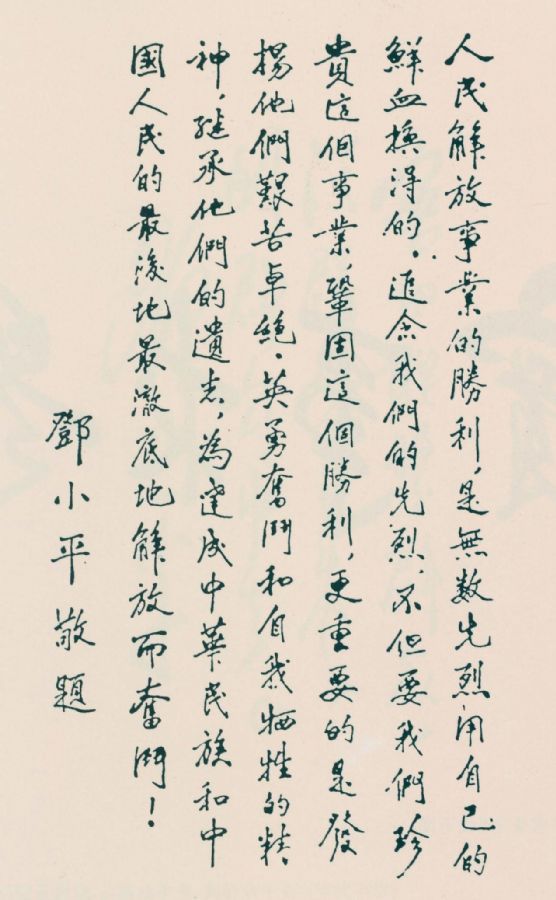 人民解放事業的勝利，是無数先烈用自己的
鮮血換得的，追念我們的先烈，不但要我們珍
貴這個事業，鞏固這個勝利，更重要的是發
揚他們艱苦卓絕、英勇奮鬥和自我犧牲的精
神，繼承他們的遺志，為達成中華民族和中
國人民的最後地最澈底地解放而奮鬥！
鄧小平敬題